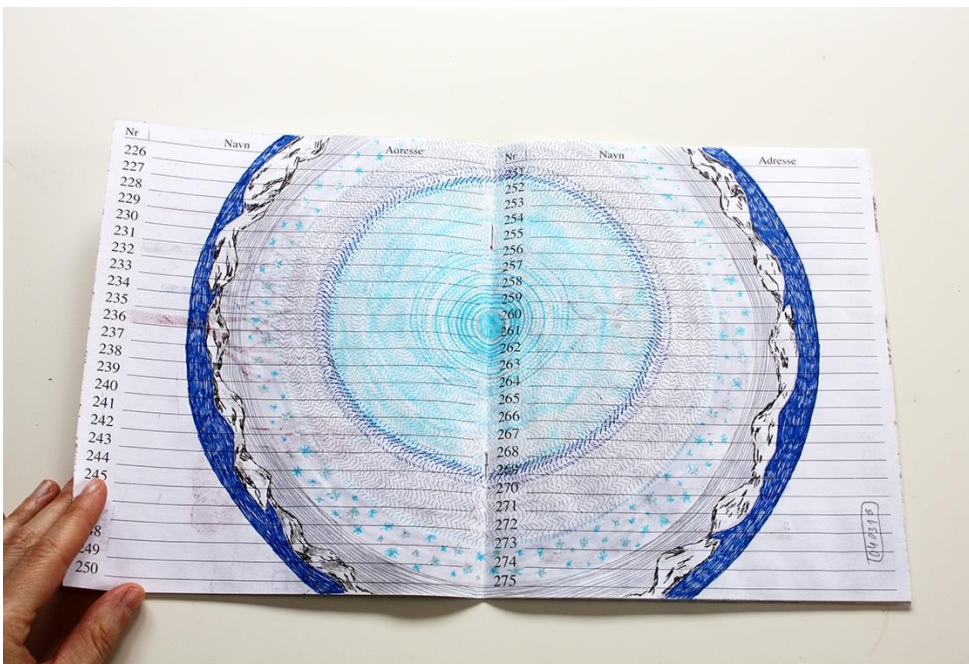 Nr Navn Adresse
226
227
228
229
230
231
232
233
234
235
236
237
238
239
240
241
242
243
244
245
48
249
250
Nr Navn Adresse
251
252
253
254
255
256
257
258
259
260
261
262
263
264
265
266
267
268
269
270
271
272
273
274
275